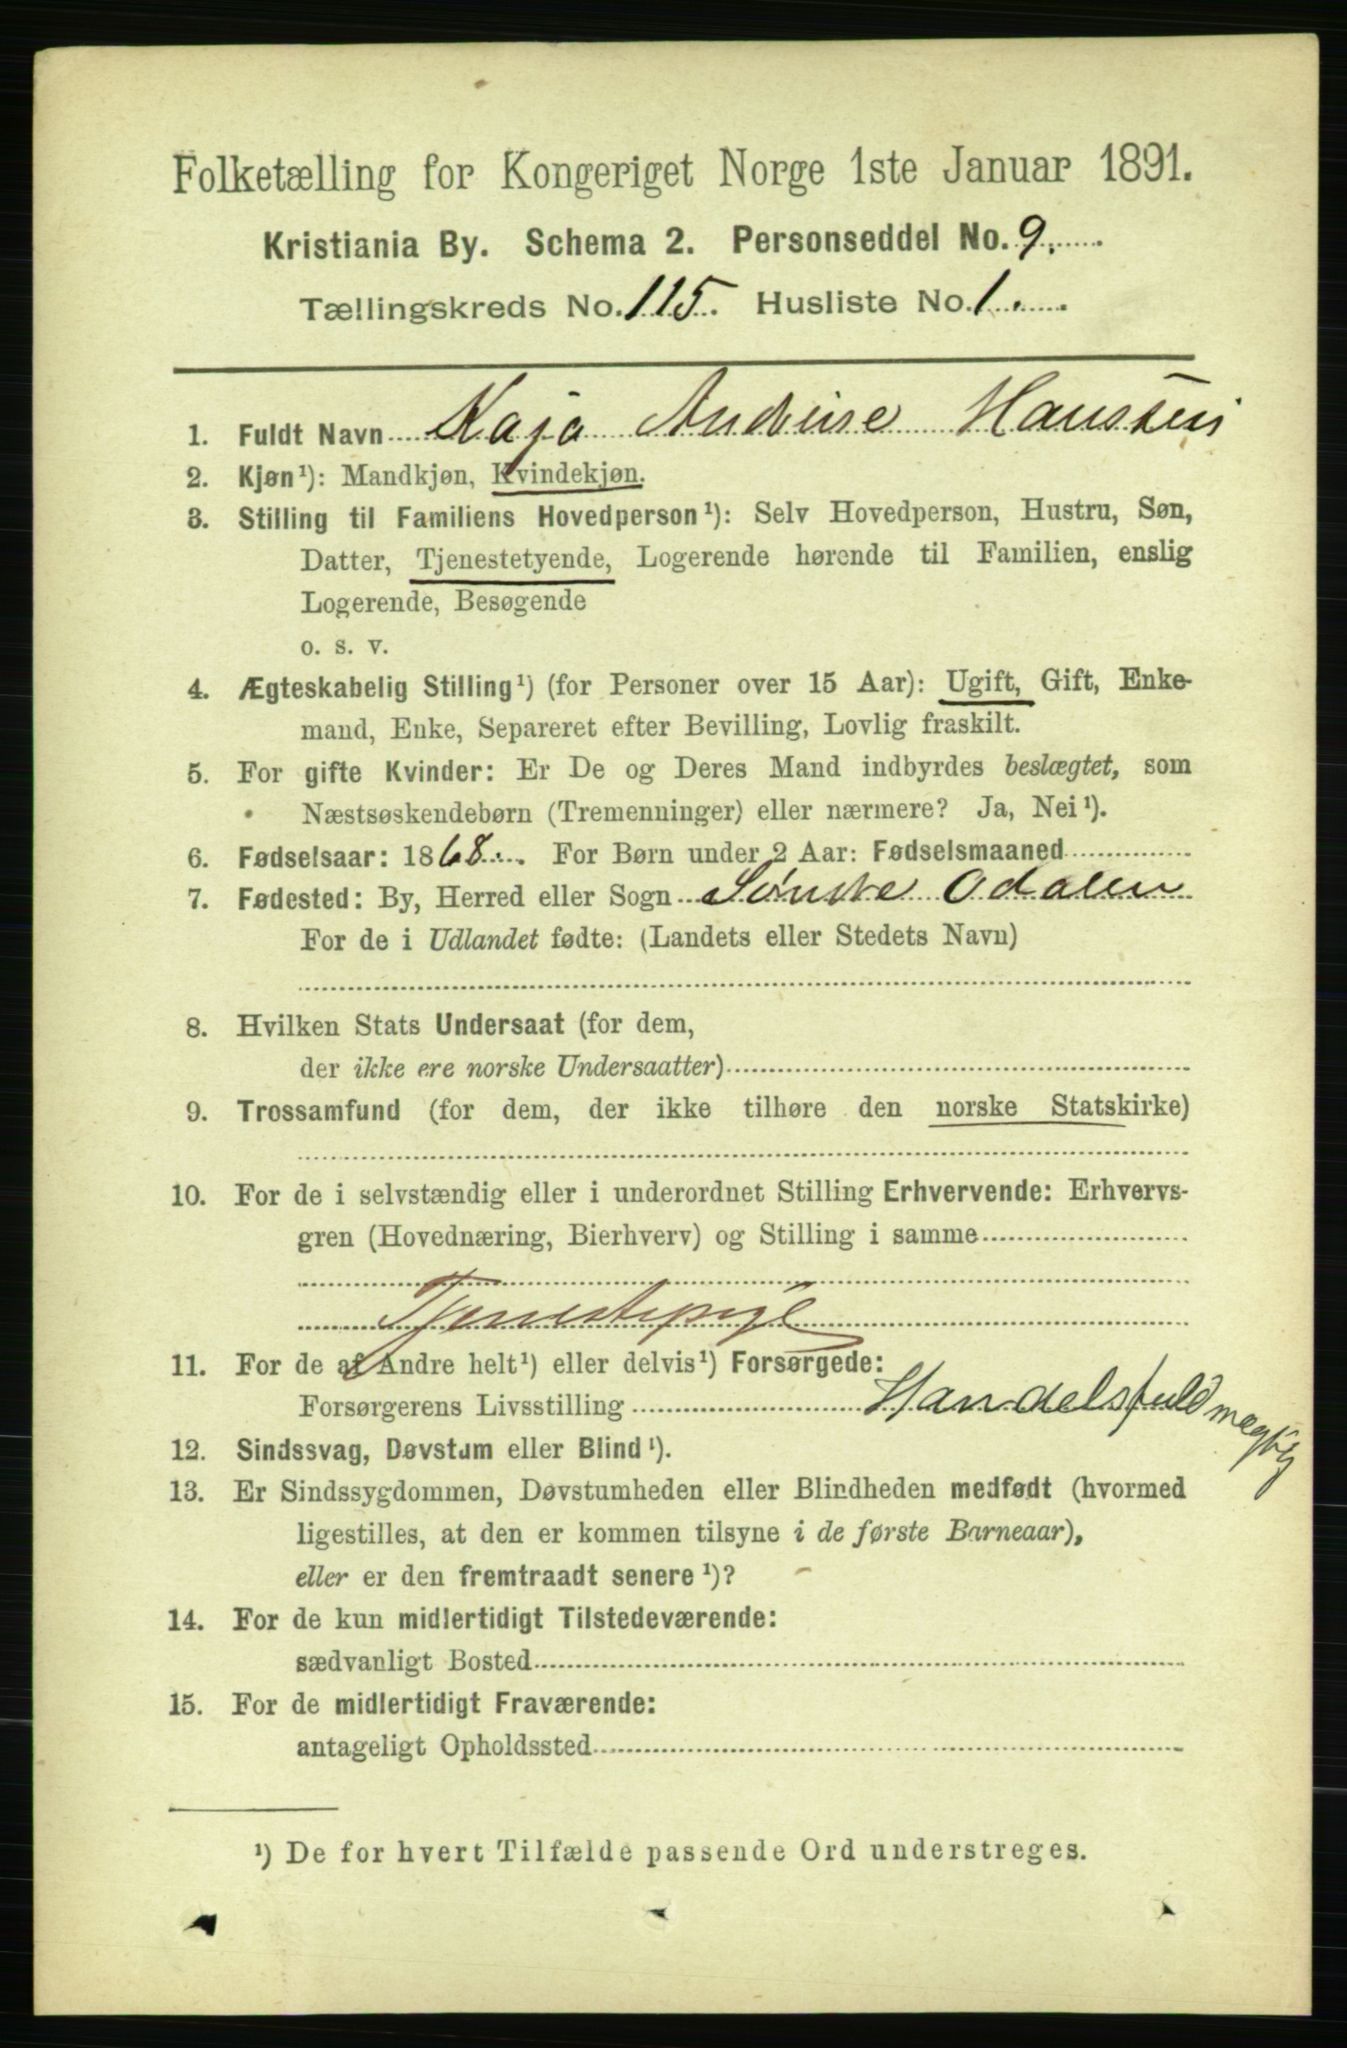 Folketælling for Kongeriget Norge 1ste Januar 1891.
Kristiania By. Schema 2. Personseddel No. 9.
Tællingskreds No. 115. Husliste No. 1.
1. Fuldt Navn Kaja Andrine Hansten
2. Kjøn¹): Mandkjøn, Kvindekjøn.
3. Stilling til Familiens Hovedperson¹): Selv Hovedperson, Hustru, Søn,
Datter, Tjenestetyende, Logerende hørende til Familien, enslig
Logerende, Besøgende
o. s. v.
4. Ægteskabelig Stilling¹) (for Personer over 15 Aar): Ugift, Gift, Enke-
mand, Enke, Separeret efter Bevilling, Lovlig fraskilt.
5. For gifte Kvinder: Er De og Deres Mand indbyrdes beslægtet, som
Næstsøskendebørn (Tremenninger) eller nærmere? Ja, Nei¹).
6. Fødselsaar: 1868. For Børn under 2 Aar: Fødselsmaaned
7. Fødested: By, Herred eller Sogn Søndre Odalen
For de i Udlandet fødte: (Landets eller Stedets Navn)
8. Hvilken Stats Undersaat (for dem,
der ikke ere norske Undersaatter)
9. Trossamfund (for dem, der ikke tilhøre den norske Statskirke)
10. For de i selvstændig eller i underordnet Stilling Erhvervende: Erhvervs-
gren (Hovednæring, Bierhverv) og Stilling i samme
Tjenestepige
11. For de af Andre helt¹) eller delvis¹) Forsørgede:
Forsørgerens Livsstilling Handelsfuldmægtig
12. Sindssvag, Døvstum eller Blind¹).
13. Er Sindssygdommen, Døvstumheden eller Blindheden medfødt (hvormed
ligestilles, at den er kommen tilsyne i de første Barneaar),
eller er den fremtraadt senere¹)?
14. For de kun midlertidigt Tilstedeværende:
sædvanligt Bosted
15. For de midlertidigt Fraværende:
antageligt Opholdssted
¹) De for hvert Tilfælde passende Ord understreges.